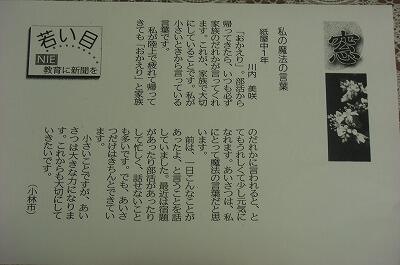 窓
私の魔法の言葉
紙屋中1年
川内 美咲
「おかえり」。部活から
帰ってきたら、いつも必ず
家族のだれかが言ってくれ
ます。これが、家族で大切
にしていることです。私が
小さいときから言っている
言葉です。
私が陸上で疲れて帰って
きても「おかえり」と家族
のだれかに言われると、と
てもうれしくて少し元気に
なれます。あいさつは、私
にとって魔法の言葉だと思
います。
前は、一日こんなことが
あったよ、と言うことを話
していました。最近は宿題
があったり部活があったり
して忙しく、話せないこと
も多いです。でも、あいさ
つだけはきちんとできてい
ます。
小さいことですが、あい
さつは大きな力になりま
す。これからも大切にして
いきたいです。
(小林市)
若い目
NIE
教育に新聞を